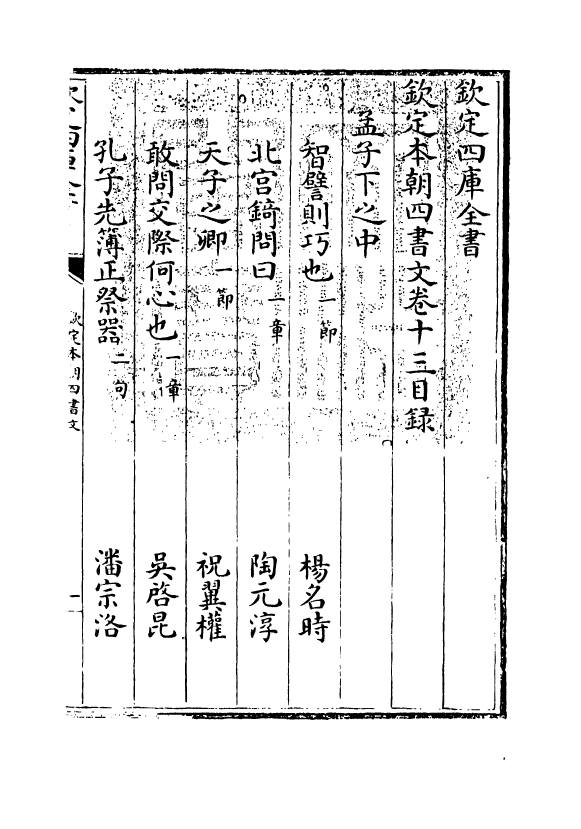 欽定四庫全書
欽定本朝四書文卷十三目録
孟子下之中
智譬則巧也一節 楊名時
北宫錡問曰一章 陶元淳
天子之卿一節 祝翼權
敢問交際何心也一章 吳啓昆
孔子先簿正祭器二句 潘宗洛
欽定本朝四書文